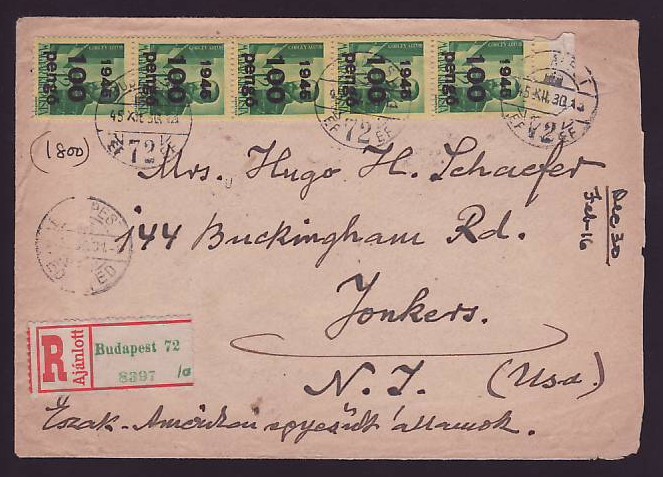 1945 100 pengő 1945 100 pengő 1945 100 pengő 1945 100 pengő 1945 100 pengő
45 XII. 30. 72
72
45 XII. 30. 72
(1800)
Mrs. Hugo H. Schaefer
144 Buckingham Rd.
Yonkers.
N. Y. (Usa.)
Észak-Amerikai egyesült államok.
Dec 30
Feb-16
R Ajánlott
Budapest 72
8397 /a